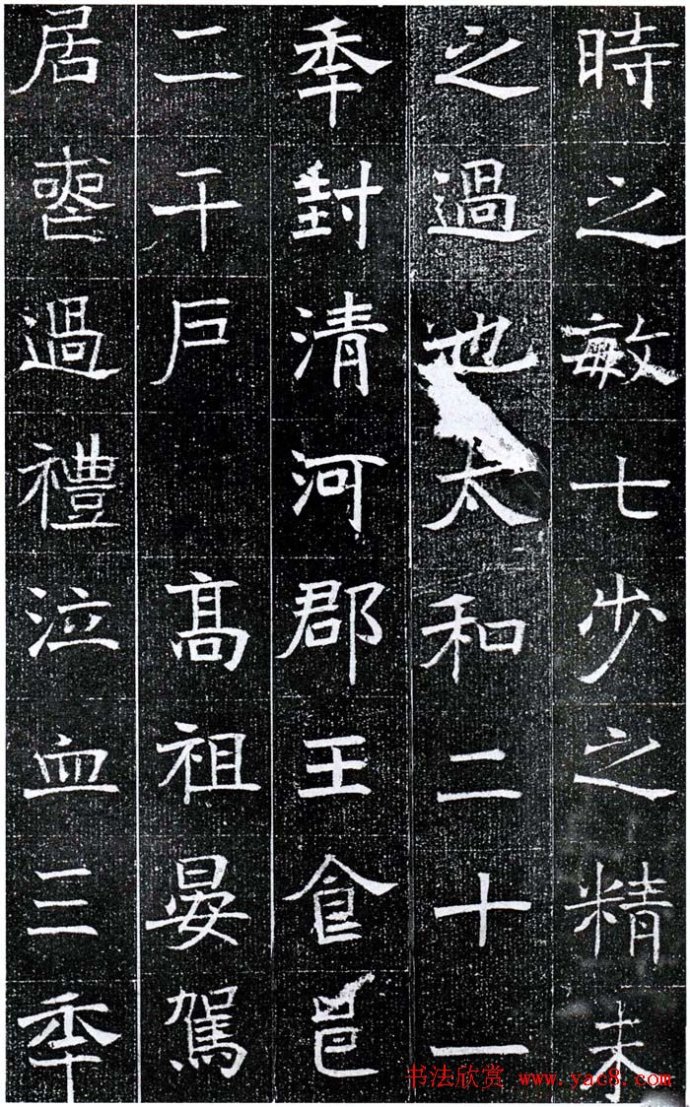 時之敏七步之精未
之過也太和二十一
秊封清河郡王食邑
二千戶 高祖晏駕
居喪過禮泣血三秊
书法欣赏 www.yac8.com